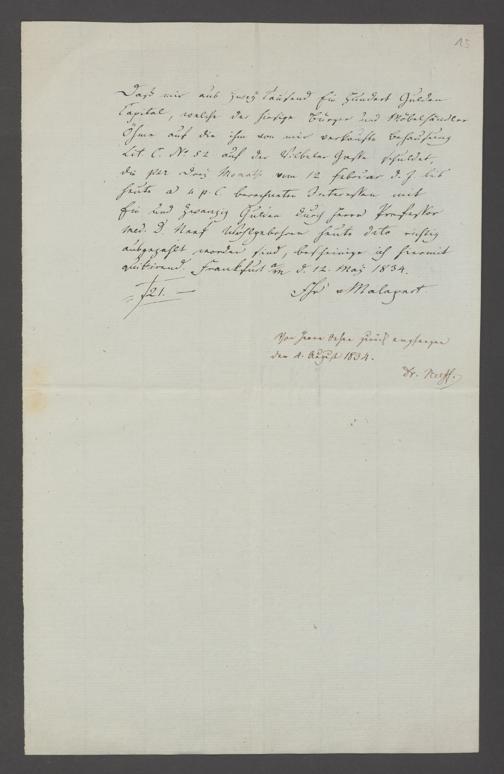 15
Daß mir aus zwey Tausend Ein Hundert Gulden
Capital, welche der hiesige Bürger und Möbelhändler
Ohme auf die ihm von mir verkaufte Behausung
Lit. C. No 52 auf der Vilbeler Gasse schuldet,
die pro drei Monate vom 12 Februar d. J. bis
heute a 4 p C berechneten Interessen mit
Ein und Zwanzig Gulden durch Herrn Professor
med. D. Neef Wohlgebohren heute dato richtig
ausgezahlt worden sind, bescheinige ich hiermit
quittirend. Frankfurt a/m d. 12. May 1834.
f 21. —
Fhr v Malapert.
Von Herrn Ohme zurück empfangen
den 4. August 1834.
Dr. Neeff.